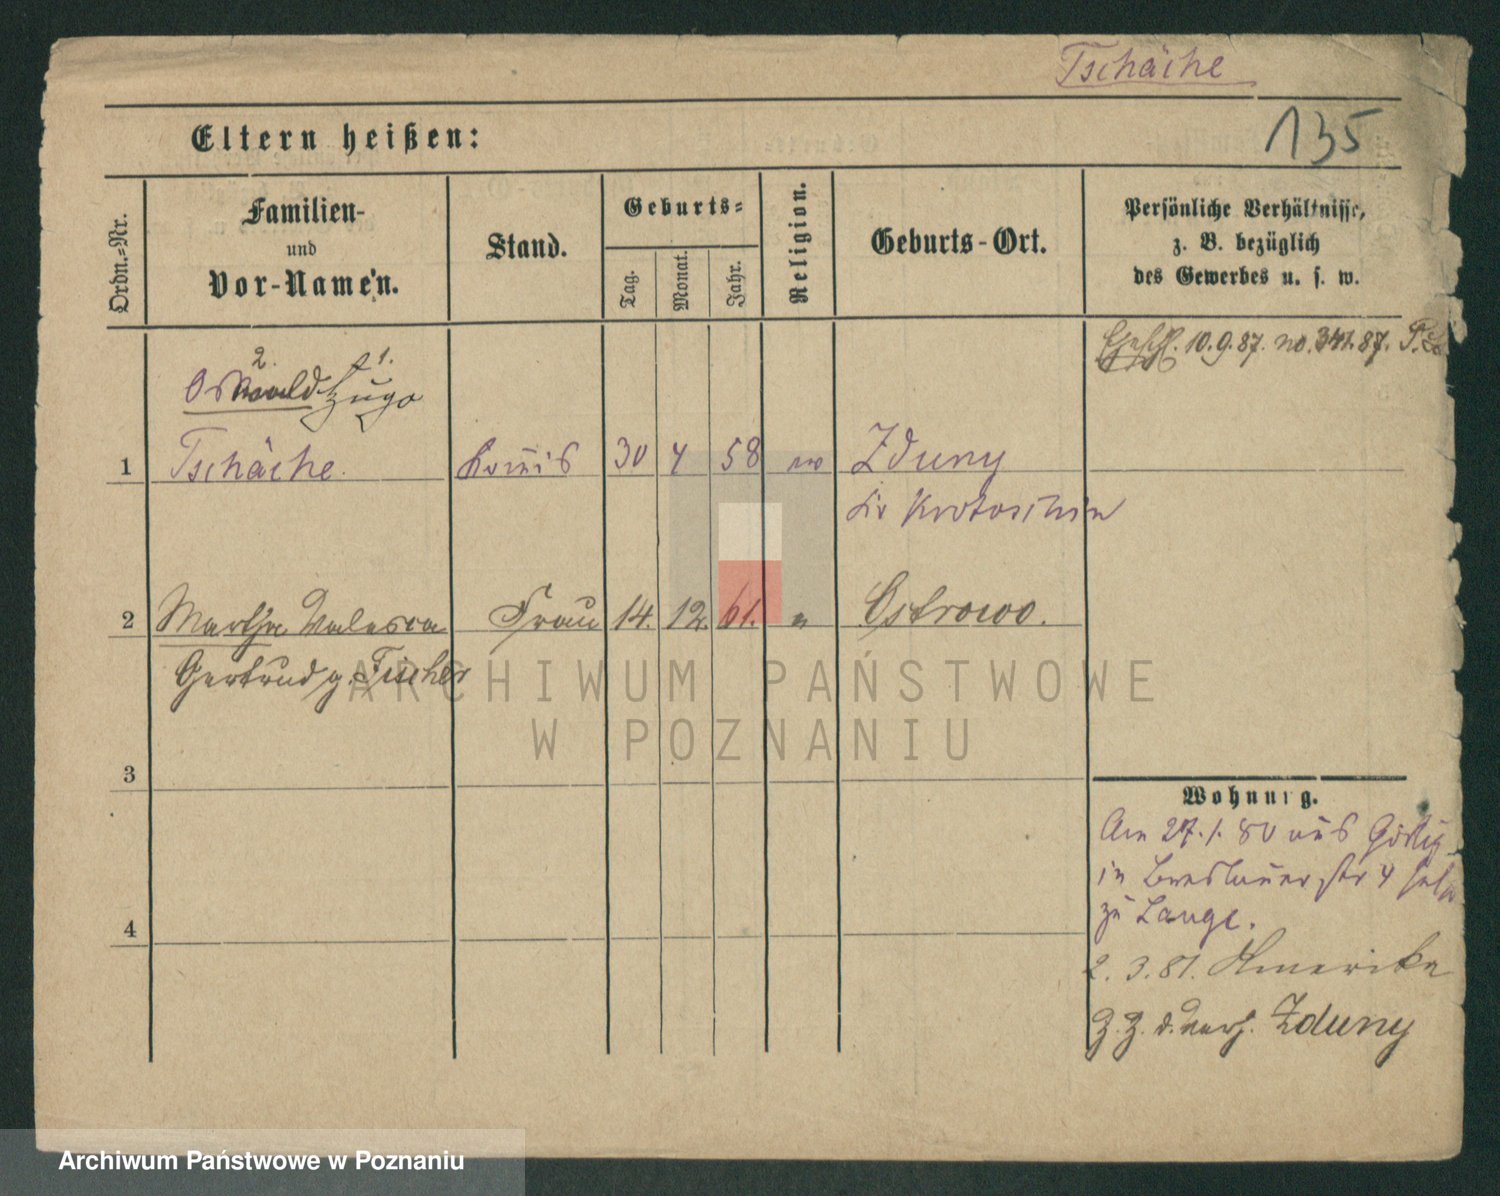 Tschäche
135
Eltern heißen:
Ordn.-Nr.
Familien-
und
Vor-Namen.
Stand.
Geburts-
Tag.
Monat.
Jahr.
Religion.
Geburts-Ort.
Persönliche Verhältnisse,
z. B. bezüglich
des Gewerbes u. s. w.
10.9.87. no. 341.87.
2. 1.
Oswald Hugo
1 Tschäche. Commis 30 4 58 Zduny
Kr Krotoschin
2 Martha Valesca Frau 14. 12. 61. " Ostrowo.
Gertrud g. Fischer
3
Wohnung.
Am 27.1.80 aus
in Breslauer str 4
zu Lange.
4
2.3.81. Amerika
z. Z. d. Verh. Zduny
ARCHIWUM PAŃSTWOWE
W POZNANIU
Archiwum Państwowe w Poznaniu